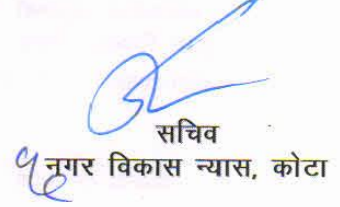 सचिव
नगर विकास न्यास, कोटा